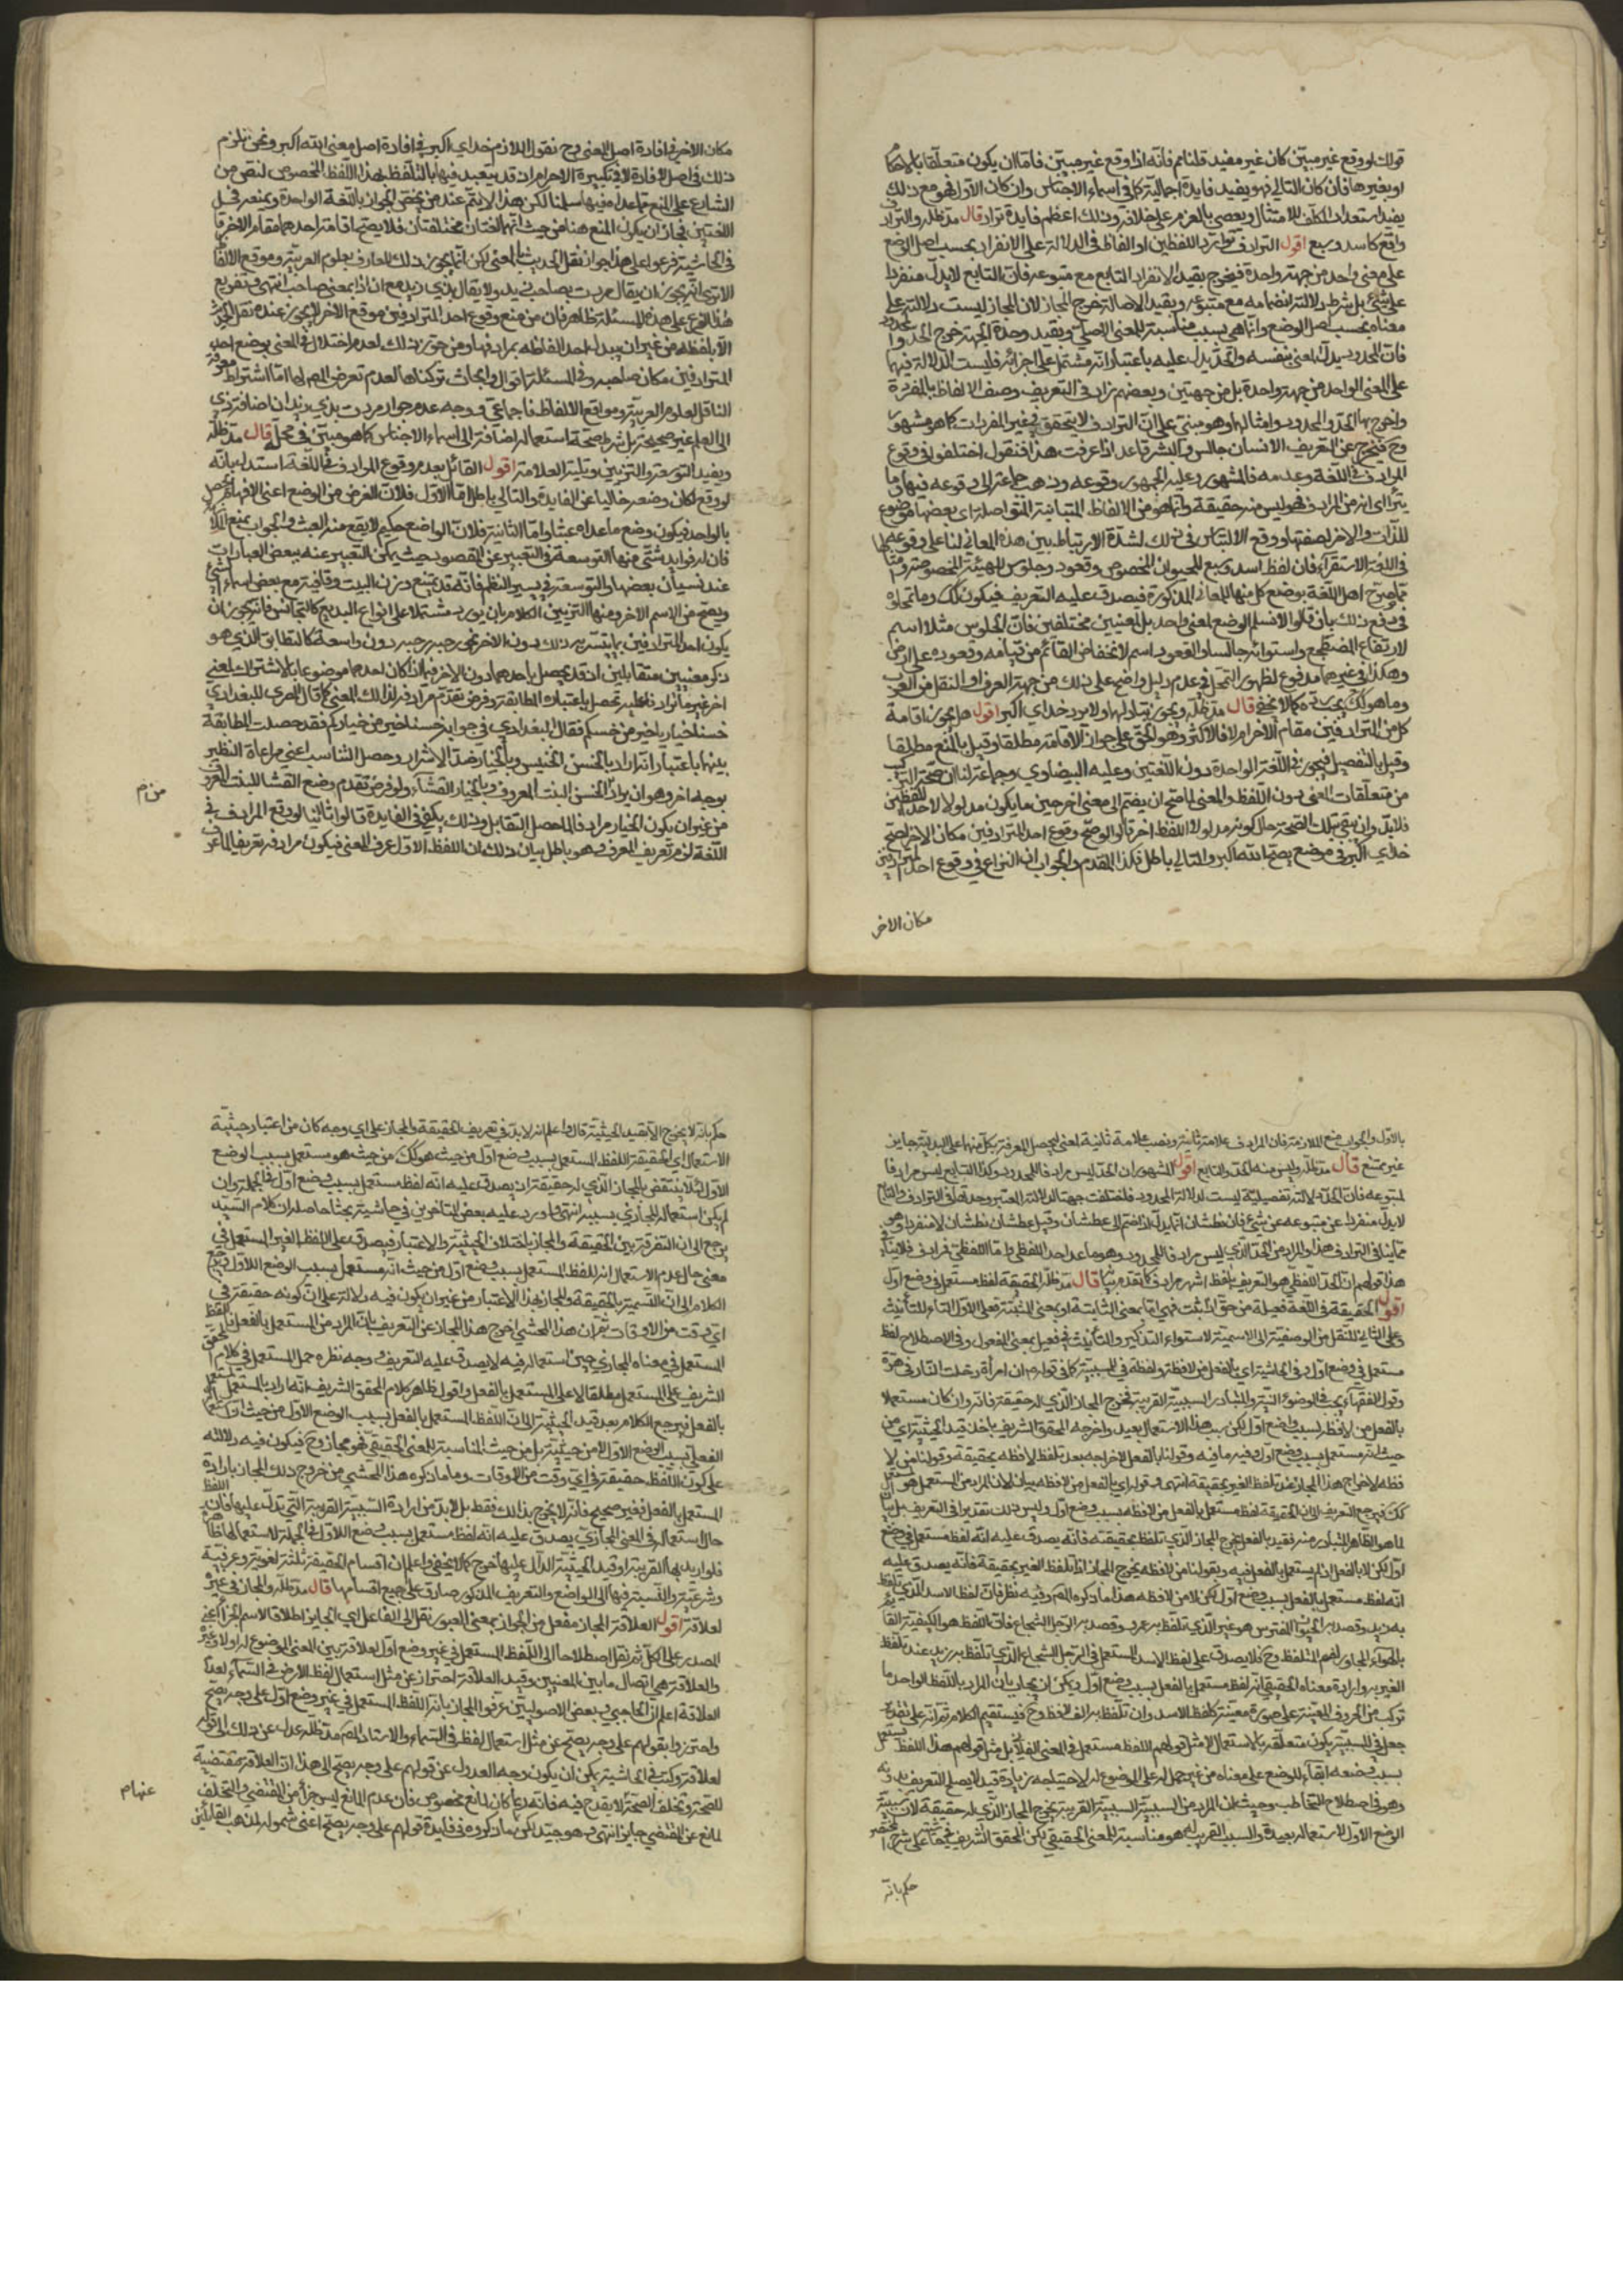 قولك لو وقع غير مبين كان غير مفيد قلنا نعم فانه اذا وقع غير مبين فاما ان يكون متعلقا بالاحكام
او بغيرها فان كان الثاني فهو يفيد فايدة اجمالية كما في اسماء الاجناس وان كان الاول فهو مع ذلك
يفيد استعداد المكلف للامتثال ويعصي بالعزم على خلافه وذلك اعظم فايدة تراد قال مد ظله والترادف
واقع كاسد وسبع اقول الترادف توارد اللفظين او الفاظ في الدلالة على الانفراد بحسب اصل الوضع
على معنى واحد من جهة واحدة فيخرج بقيد الانفراد التابع مع متبوعه فان التابع لا يدل منفردا
على شيء بل شرط دلالته انضمامه مع متبوعه وبقيد الاصالة خرج المجاز لان المجاز ليست دلالته على
معناه بحسب اصل الوضع وانما هي بسبب مناسبته للمعنى الاصلي وبقيد وحدة الجهة خرج الحد والمحدود
فان المحدود يدل على المعنى بنفسه والحد يدل عليه باعتبار انه مشتمل على اجزائه فليست الدلالة فيهما
على المعنى الواحد من جهة واحدة بل من جهتين وبعضهم زاد في التعريف وصف الالفاظ بالمفردة
واخرج بها الحد والمحدود وامثالهما وهو مبني على ان الترادف لا يتحقق في غير المفردات كما هو مشهور
وح فيخرج عن التعريف الانسان جالس والبشر قاعد اذا عرفت هذا فنقول اختلفوا في وقوع
المرادف في اللغة وعدمه فالمشهور وعليه الجمهور وقوعه وذهب جماعة الى لا وقوعه فيها وما
يتراءى انه من المرادف فهو ليس منه حقيقة وانما هو من الالفاظ المتباينة المتواصلة اي بعضها موضوع
للذات والاخر لصفتها ووقع الالتباس في ذلك لشدة الارتباط بين هذه المعاني لنا على وقوعه
في اللغة الاستقراء فان لفظ اسد وسبع للحيوان المخصوص وقعود وجلوس للهيئة المخصوصة
مما صرح اهل اللغة بوضع كل منها للمعاني المذكورة فيصدق عليه التعريف فيكون كك وما تمحلوه
في دفع ذلك بان قالوا لا نسلم الوضع لمعنى واحد بل لمعنيين مختلفين فان الجلوس مثلا اسم
لارتفاع المضطجع واستوائه جالسا والقعود اسم لانخفاض القائم من قيامه وقعوده على الارض
وهكذا في غيرهما مدفوع لظهور التمحل في عدم دليل واضح على ذلك من جهة العرف او النقل من العرب
كما لا يخفى قال مد ظله ويجوز تبادلهما ولا يرد خداي اكبر اقول هل يجوز اقامة
كل من المترادفين مقام الاخر ام لا فالاكثر وهو الحق على جواز الاقامة مطلقا وقيل بالمنع مطلقا
وقيل بالتفصيل فيجوز في اللغة الواحدة دون اللغتين وعليه البيضاوي وجماعة لنا ان صحة التركيب
من متعلقات المعنى دون اللفظ والمعنى لما صح ان يضم الى معنى اخر حين ما يكون مدلولا لاحد اللفظين
فلابد وان يبقى تلك الصحة حال كونه مدلولا للفظ اخر قالوا لو صح وقوع احد المترادفين مكان الاخر لصح
خداي اكبر في موضع يصح الله اكبر والتالي باطل فكذا المقدم والجواب ان النزاع في وقوع احد المترادفين
مكان الاخر
مكان الاخر في افادة اصل المعنى وح نقول اللازم خداي اكبر في افادة اصل معنى الله اكبر ونحن نلتزم
ذلك في اصل الافادة لا في تكبيرة الاحرام ان قد يتعبد فيها بالتلفظ بهذا اللفظ المخصوص لنقص من
الشارع على المنع مما عداه فيها سلمنا لكن هذا لا يتم عند من يخص الجواز باللغة الواحدة ويمنعه في كل
اللغتين فجاز ان يكون المنع هنا من حيث انهما لغتان مختلفتان فلا يصح اقامة احدهما مقام الاخر قال
في الحاشية فرعوا على هذا جواز نقل الحديث بالمعنى لكن انما يجوز ذلك للعارف بعلوم العربية وموقع الالفاظ
الا ترى انه يجوز ان يقال مررت بصاحب زيد ولا يقال بذي زيد مع ان ذا بمعنى صاحب انتهى وتفريع
هذا الفرع على هذه المسئلة ظاهر فان من منع وقوع احد المترادفين موقع الاخر لا يجوز عنده نقل الحديث
الا بلفظه من غير ان يبدل احد الفاظه بمرادفها ومن جوز ذلك لعدم اختلال في المعنى بوضع احد
المترادفين مكان صاحبه وفي المسئلة اقوال وابحاث تركناها لعدم تعرض المص لها اما اشتراط معرفة
الناقل لعلوم العربية ومواقع الالفاظ فاجماعي ووجه عدم جواز مررت بذي زيد ان اضافة ذي
الى العلم غير صحيحة بل شرط صحة استعماله اضافته الى اسماء الاجناس كما هو مبين في محله قال مد ظله
ويفيد التوسعة والتزيين وتليه العلامة اقول القائل بعدم وقوع المرادف في اللغة استدل بانه
لو وقع لكان وضعه خاليا عن الفايدة والتالي باطل اما الاول فلان الغرض من الوضع اعني الافهام يحصل
بالواحد فيكون وضع ما عداه عبثا واما الثانية فلان الواضع حكيم لا يقع منه العبث والجواب بمنع الملازمة
فان له فوايد شتى منها التوسعة في التعبير عن المقصود بحيث يمكن التعبير عنه ببعض العبارات
عند نسيان بعضها او التوسعة في تيسير النظم فانه قد يمتنع وزن البيت وقافيته مع بعض اسماء الشيء
ويصح مع الاسم الاخر ومنها التزيين للكلام بان يورد مشتملا على انواع البديع كالتجانس فانه يجوز ان
يكون احد المترادفين مما يتيسر به ذلك دون الاخر نحو رحبة رحبة دون واسعة كالتطابق الذي هو
ذكر معنيين متقابلين اذ قد يحصل باحدهما دون الاخر فيما اذا كان احدهما موضوعا بالاشتراك لمعنى
اخر غير ما تواردا عليه تحصل باعتباره المطابقة وفرض تقدم مرادفه لذلك المعنى كما قال المصري للبغدادي
خسنا خيار ياخير من خسكم فقال البغدادي في جوابه خسنا خير من خياركم فقد حصلت المطابقة
بينهما باعتبار انه اراد بالخس الخسيس وبالخيار ضد الاشرار وحصل التناسب اعني مراعاة النظير
بوجه اخر وهو ان يراد بالخس النبت المعروف وبالخيار القثاء ولو فرض تقدم وضع القثا للنبت المعروف
من غير ان يكون الخيار مرادفا لما حصل التقابل وذلك يكفي في الفايدة قالوا ثانيا لو وقع المرادف في
اللغة لزم تعريف المعرف وهو باطل بيان ذلك ان اللفظ الاول عرف المعنى فيكون مرادفه تعريفا لما عرف
بالاول والجواب منع الملازمة فان المرادف علامة ثانية ونصب علامة ثانية لمعنى ليحصل المعرفة بكل منهما على البدلية جايز
غير ممتنع قال مد ظله وليس منه الحد والتابع اقول المشهور ان الحد ليس مرادفا للمحدود وكذا التابع ليس مرادفا
لمتبوعه فان الحد دلالته تفصيلية ليست كدلالة المحدود فاختلفت جهتا الدلالة المعتبر وحدتها في الترادف والتابع
لا يدل منفردا عن متبوعه عن شيء فان نطشان انما يدل اذا انضم الى عطشان وقيل عطشان نطشان لا منفردا وهو
مما ينافي الترادف هذا والمراد من الحد الذي ليس مرادفا للمحدود هو ما عدا حد اللفظي واما اللفظي فمرادف فلا ينافي
هذا قولهم ان الحد اللفظي هو التعريف بلفظ اشهر مرادف كما تقدم بيانه قال مد ظله الحقيقة لفظ مستعمل في وضع اول
اقول الحقيقة في اللغة فعيلة من حق اذا ثبت فهي اما بمعنى الثابتة او بمعنى المثبتة فعلى الاول التاء للتأنيث
وعلى الثاني للنقل من الوصفية الى الاسمية لاستواء التذكير والتأنيث في فعيل بمعنى المفعول وفي الاصطلاح لفظ
مستعمل في وضع اول قال في الحاشية اي بالفعل من لافظه ولفظة في للسببية كما في قوله ان امرأة دخلت النار في هرة
وقول الفقهاء يجب في الوضوء النية والمتبادر السببية القريبة فخرج المجاز الذي له حقيقة فانه وان كان مستعملا
بالفعل من لافظه بسبب وضع اول لكن سببه هذا الاستعمال بعيد واخرجه المحقق الشريف باخذ قيد الحيثية اي من
حيث انه مستعمل بسبب وضع اول وفيه ما فيه وقولنا بالفعل لاخراجه بعد تلفظ لافظه بحقيقته وقولنا من لا
فظه لاخراج هذا المجاز عند تلفظ الغير بحقيقته انتهى وقوله اي بالفعل من لافظه بيان لان المراد من المستعمل هو المستعمل
كك فيرجع التعريف الى ان الحقيقة لفظ مستعمل بالفعل من لافظه بسبب وضع اول وليس ذلك تقديرا في التعريف بل بيانا
لما هو الظاهر المتبادر منه فبقيد بالفعل يخرج المجاز الذي تلفظ بحقيقته فانه يصدق عليه انه لفظ مستعمل في وضع
اول لكن لا بالفعل اذ لم يستعمل بالفعل فيه وبقولنا من لافظه يخرج المجاز اذا تلفظ الغير بحقيقته فانه يصدق عليه
انه لفظ مستعمل بالفعل بسبب وضع اول لكن لا من لافظه هذا ما ذكره المص وفيه نظر فان لفظ الاسد الذي تلفظ
به زيد وقصد به الحيوان المفترس هو غير الذي تلفظ به عمرو وقصد به الرجل الشجاع فان اللفظ هو الكيفية القائمة
بالهواء المجاور لفم المتلفظ وح فلا يصدق على لفظ الاسد المستعمل في الرجل الشجاع الذي تلفظ به زيد عند تلفظ
الغير به وارادة معناه الحقيقي انه لفظ مستعمل بالفعل بسبب وضع اول ويمكن ان يجاب بان المراد باللفظ الواحد ما
تركب من الحروف المعينة على صورة معينة كلفظ الاسد وان تلفظ به الف لافظ وح فيستقيم الكلام ثم انه على تقدير
جعل في للسببية يكون متعلقه بالاستعمال لا مثل قولهم اللفظ مستعمل في المعنى الفلاني بل مثل قولهم هذا اللفظ مستعمل
بسبب وضعه ابقاء للوضع على معناه من غير حمل له على الموضوع له لاحتياجه زيادة قيد لا يصلح التعريف بدونه
وهو في اصطلاح التخاطب وحيث ان المراد من السببية السببية القريبة يخرج المجاز الذي له حقيقة لان سببية
الوضع الاول لاستعماله بعيدة والسبب القريب له هو مناسبة المعنى الحقيقي لكن المحقق الشريف في حاشيته على شرح المختصر
حكم بانه
حكم بانه لا يخرج الا بقيد الحيثية قال واعلم انه لابد في تعريف الحقيقة والمجاز على اي وجه كان من اعتبار حيثية
الاستعمال اي الحقيقة اللفظ المستعمل بسبب وضع اول من حيث هو كك من حيث هو مستعمل بسبب الوضع
الاول لئلا ينتقض بالمجاز الذي له حقيقة اذ يصدق عليه انه لفظ مستعمل بسبب وضع اول في الجملة وان
لم يكن استعماله المجازي بسببه انتهى واورد عليه بعض المتاخرين في حاشيته بحثا حاصله ان كلام السيد
يرجع الى ان التفرقة بين الحقيقة والمجاز باختلاف الحيثية والاعتبار فيصدق على اللفظ الغير المستعمل في
معنى حال عدم الاستعمال انه لفظ المستعمل بسبب وضع اول من حيث انه مستعمل بسبب الوضع الاول فرجع
الكلام الى ان التسمية بالحقيقة والمجاز هذا الاعتبار من غير ان يكون فيه دلالة على ان كونه حقيقة في
اي وقت من الاوقات ثم ان هذا المحشي اخرج هذا المجاز عن التعريف بان المراد من المستعمل بالفعل فاللفظ
المستعمل في معناه المجازي حين استعماله فيه لا يصدق عليه التعريف ووجه نظره حمل المستعمل في كلام المحقق
الشريف على المستعمل مطلقا لا على المستعمل بالفعل واقول ظاهر كلام المحقق الشريف انه اراد بالمستعمل المستعمل
بالفعل فيرجع الكلام بعد قيد الحيثية الى ان اللفظ المستعمل بالفعل بسبب الوضع الاول من حيث
الفعل بسبب الوضع الاول لا من حيثيته بل من حيث المناسبة للمعنى الحقيقي فهو مجاز وح فيكون فيه دلالة
على كون اللفظ حقيقة في اي وقت من الاوقات وما ذكره هذا المحشي من خروج ذلك المجاز بارادة
المستعمل بالفعل فغير صحيح فانه لا يخرج بذلك فقط بل لابد من ارادة السببية القريبة التي تدل عليها فان اللفظ
حال استعماله في المعنى المجازي يصدق عليه انه لفظ مستعمل بسبب وضع الاول في الجملة لاستعماله
فلو اريد بها القريبة او قيد الحيثية الدال عليها خرج كما لا يخفى واعلم ان اقسام الحقيقة ثلثة لغوية وعرفية
وشرعية والنسبة فيها الى الواضع والتعريف المذكور صادق على جميع اقسامها قال مد ظله والمجاز في غيره
لعلاقة اقول العلاقة المجاز مفعل من الجواز بمعنى العبور نقل الى الفاعل اي الجايز اطلاقا لاسم الجزء اعني
المصدر على الكل ثم نقل اصطلاحا الى اللفظ المستعمل في غير وضع اول لعلاقة بين المعنى الموضوع له اولا وغيره
والعلاقة هي اتصال ما بين المعنيين وقيد العلاقة احتراز عن مثل استعمال لفظ الارض في السماء لعدم
العلاقة اعلم ان الحاجبي وبعض الاصوليين عرفوا المجاز بانه اللفظ المستعمل في غير وضع اول على وجه يصح
واحترزوا بقولهم على وجه يصح عن مثل استعمال لفظ في السماء والاستاد المص مد ظله عدل عن ذلك الى قوله
لعلاقة وكتب في الحاشية يمكن ان يكون وجه العدول عن قولهم على وجه يصح الى هذا ان العلاقة مقتضية
للصحة وتخلف الصحة لا يقدح فيه فانه ربما كان لمانع مخصوص فان عدم المانع ليس جزأ من المقتضي والتخلف
لمانع عن المقتضي جايز انتهى وهو جيد لكن ما ذكروه في فايدة قولهم على وجه يصح اعني شموله لمذهب القائلين